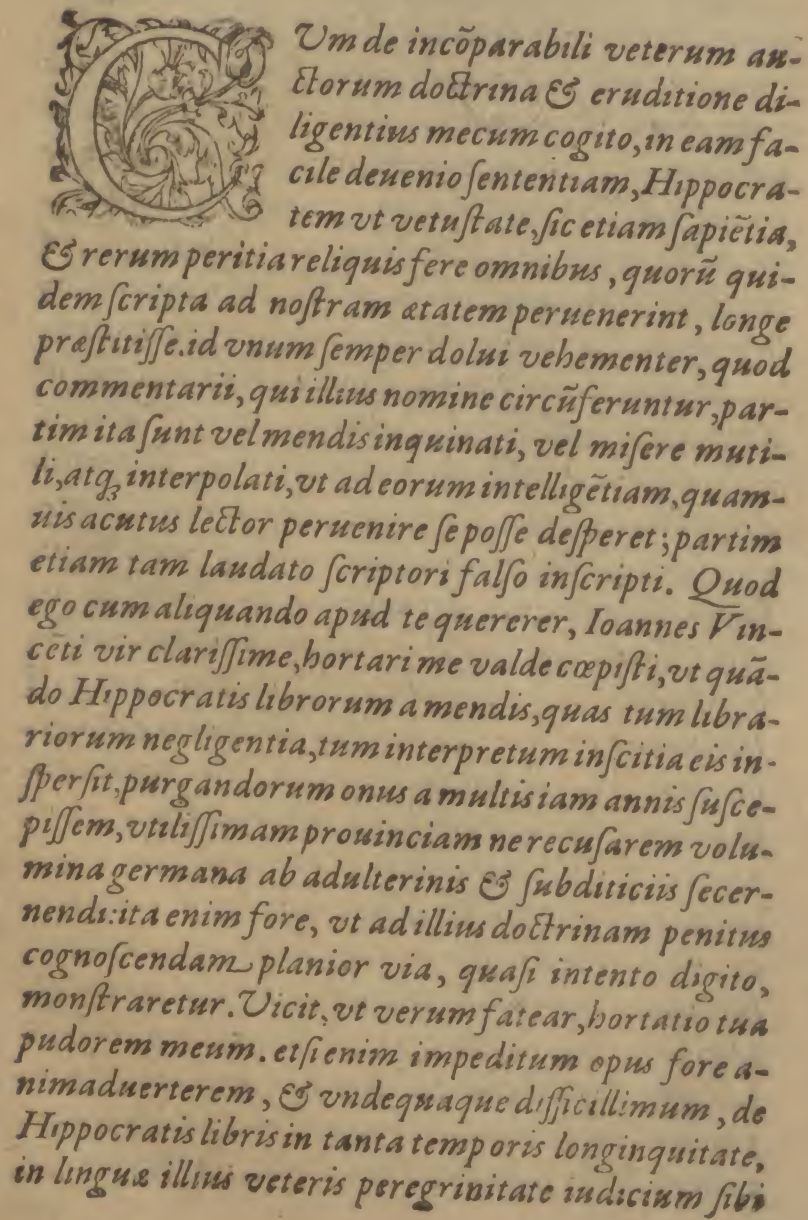 CVm de incõparabili veterum au-
ctorum doctrina & eruditione di-
ligentius mecum cogito, in eam fa-
cile deuenio ſententiam, Hippocra-
tem vt vetuſtate, ſic etiam ſapiẽtia,
& rerum peritia reliquis fere omnibus, quorũ qui-
dem ſcripta ad noſtram ætatem peruenerint, longe
præſtitiſſe. id vnum ſemper dolui vehementer, quod
commentarii, qui illius nomine circũferuntur, par-
tim ita ſunt vel mendis inquinati, vel miſere muti-
li, atq; interpolati, vt ad eorum intelligẽtiam, quam-
uis acutus lector peruenire ſe poſſe deſperet; partim
etiam tam laudato ſcriptori falſo inſcripti. Quod
ego cum aliquando apud te quererer, Ioannes Vin-
cẽti vir clariſſime, hortari me valde cœpiſti, vt quã-
do Hippocratis librorum a mendis, quas tum libra-
riorum negligentia, tum interpretum inſcitia eis in-
ſperſit, purgandorum onus a multis iam annis ſuſce-
piſſem, vtiliſſimam prouinciam ne recuſarem volu-
mina germana ab adulterinis & ſubditiciis ſecer-
nendi: ita enim fore, vt ad illius doctrinam penitus
cognoſcendam planior via, quaſi intento digito,
monſtraretur. Vicit, vt verum fatear, hortatio tua
pudorem meum. etſi enim impeditum opus fore a-
nimaduerterem, & vndequaque difficillimum, de
Hippocratis libris in tanta temporis longinquitate,
in linguæ illius veteris peregrinitate iudicium ſibi